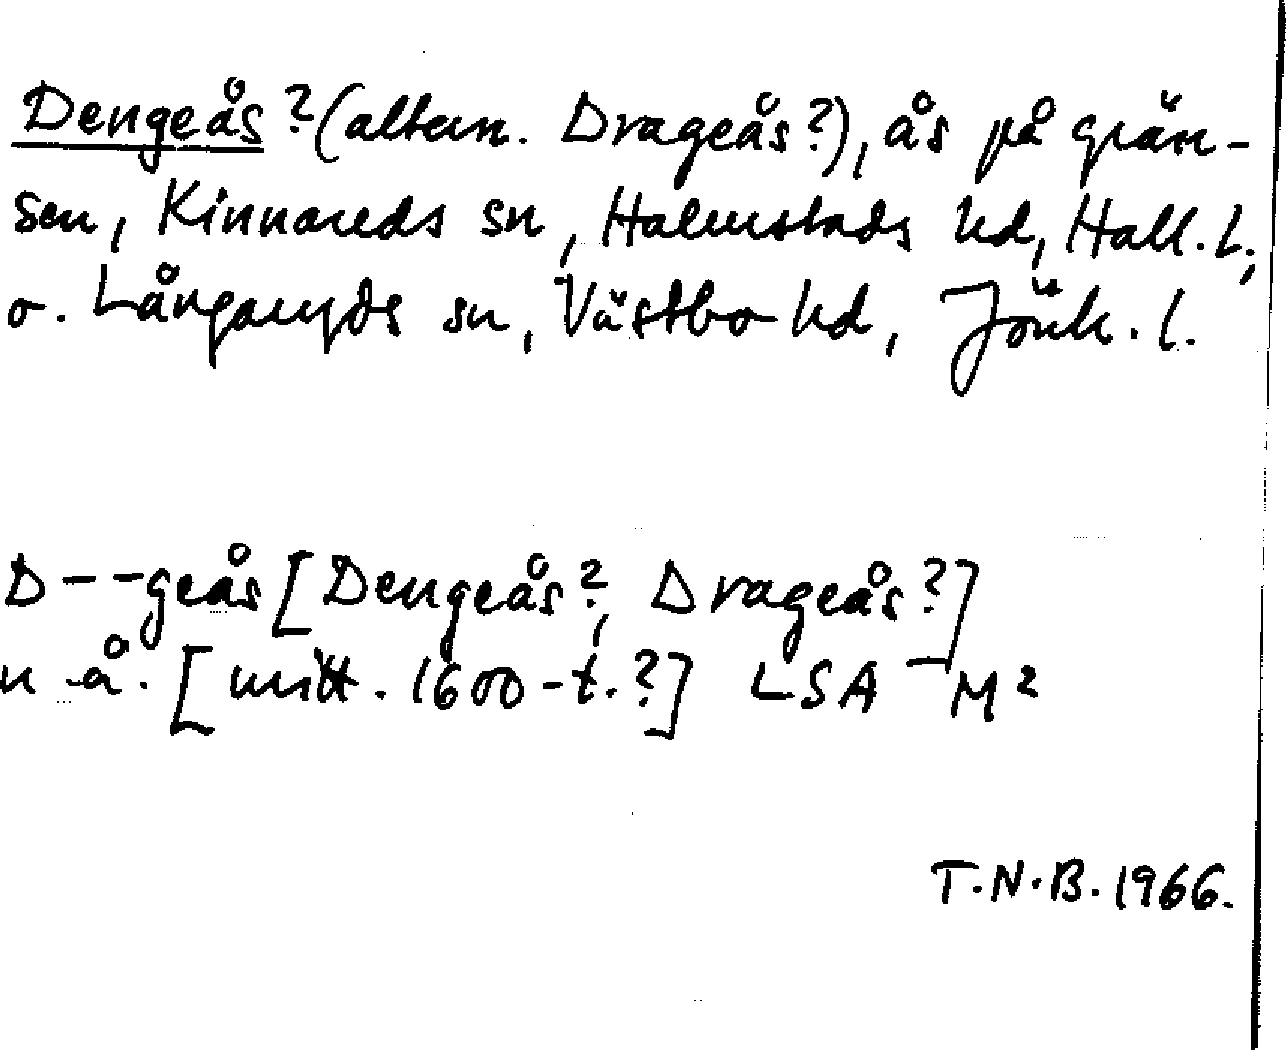 Dengeås? (altern. Drageås?), ås på grän-
sen, Kinnareds sn, Halmstads hd, Hall. l.;
o. Långaryds sn, Västbo hd, Jönk. l.
D--geås [Dengeås?, Drageås?]
n å. [mitt. 1600-t.?] LSA M2
T.N.B. 1966.